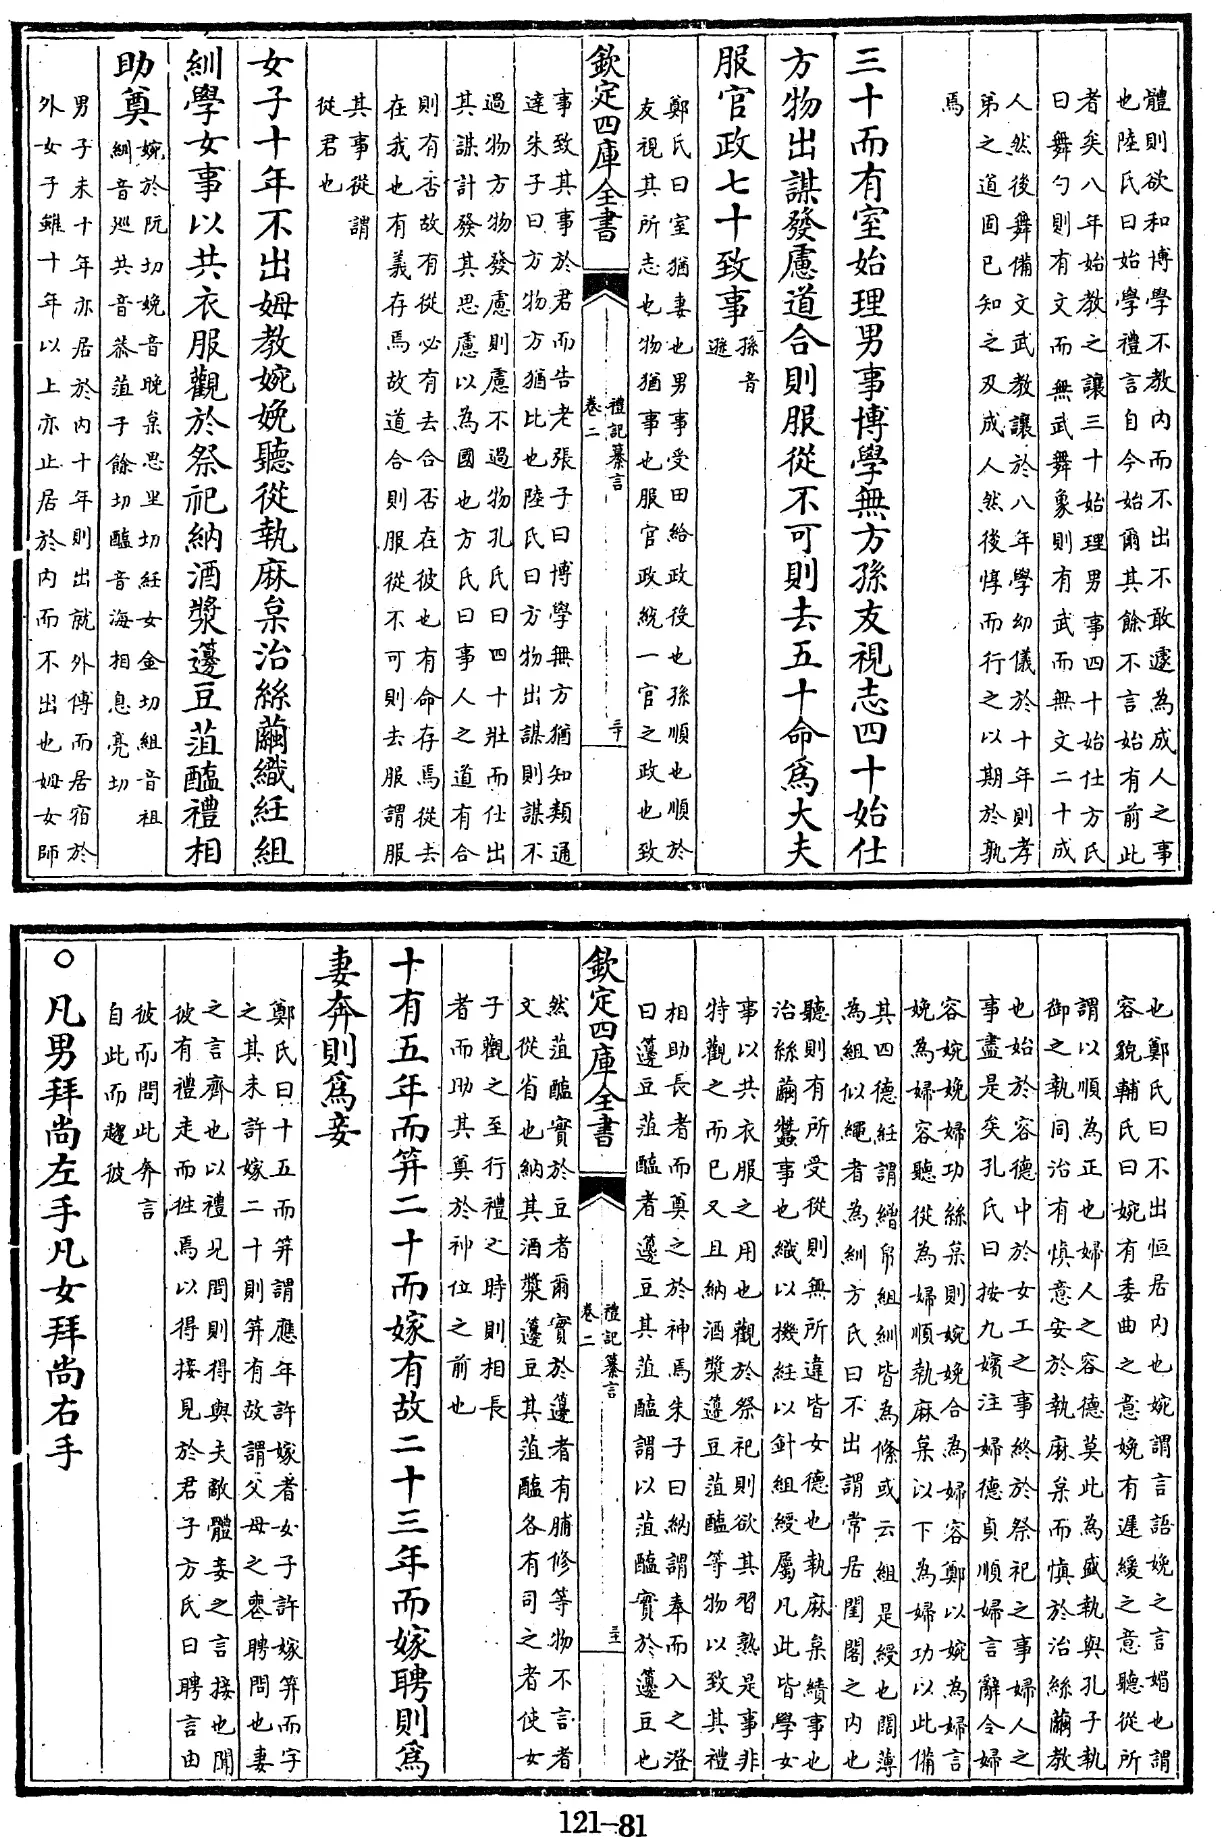 體則欲和博學不教内而不出不敢遽為成人之事
也陸氏曰始學禮言自今始爾其餘不言始有前此
者矣八年始教之讓三十始理男事四十始仕方氏
曰舞勺則有文而無武舞象則有武而無文二十成
人然後舞備文武教讓於八年學幼儀於十年則孝
弟之道固已知之及成人然後惇而行之以期於孰
焉
三十而有室始理男事博學無方孫友視志四十始仕
方物出謀發慮道合則服從不可則去五十命為大夫
服官政七十致事
孫音
遜
鄭氏曰室猶妻也男事受田給政役也孫順也順於
友視其所志也物猶事也服官政統一官之政也致
欽定四庫全書
禮記纂言
卷二
三十
事致其事於君而告老張子曰博學無方猶知類通
達朱子曰方物方猶比也陸氏曰方物出謀則謀不
過物方物發慮則慮不過物孔氏曰四十壯而仕出
其謀計發其思慮以為國也方氏曰事人之道有合
則有否故有從必有去合否在彼也有命存焉從去
在我也有義存焉故道合則服從不可則去服謂服
其事從謂
從君也
女子十年不出姆教婉娩聽從執麻枲治絲繭織紝組
紃學女事以共衣服觀於祭祀納酒漿籩豆菹醢禮相
助奠
婉於阮切娩音晚枲思里切紝女金切組音祖
紃音巡共音恭菹子餘切醢音海相息亮切
男子未十年亦居於内十年則出就外傅而居宿於
外女子雖十年以上亦止居於内而不出也姆女師
也鄭氏曰不出恒居内也婉謂言語娩之言媚也謂
容貌輔氏曰婉有委曲之意娩有遲緩之意聽從所
謂以順為正也婦人之容德莫此為盛執與孔子執
御之執同治有慎意安於執麻枲而慎於治絲繭教
也始於容德中於女工之事終於祭祀之事婦人之
事盡是矣孔氏曰按九嬪注婦德貞順婦言辭令婦
容婉娩婦功絲枲則婉娩合為婦容鄭以婉為婦言
娩為婦容聽從為婦順執麻枲以下為婦功以此備
其四德紝謂繒帛組紃皆為絛或云組是綬也闊薄
為組似繩者為紃方氏曰不出謂常居閨閤之内也
聽則有所受從則無所違皆女德也執麻枲績事也
治絲繭蠶事也織以機紝以針組綬屬凡此皆學女
事以共衣服之用也觀於祭祀則欲其習熟是事非
特觀之而已又且納酒漿籩豆菹醢等物以致其禮
相助長者而奠之於神焉朱子曰納謂奉而入之澄
曰籩豆菹醢者籩豆其菹醢謂以菹醢實於籩豆也
欽定四庫全書
禮記纂言
卷二
三十一
然菹醢實於豆者爾實於籩者有脯修等物不言者
文從省也納其酒漿籩豆其菹醢各有司之者使女
子觀之至行禮之時則相長
者而助其奠於神位之前也
十有五年而筓二十而嫁有故二十三年而嫁聘則為
妻奔則為妾
鄭氏曰十五而筓謂應年許嫁者女子許嫁筓而字
之其未許嫁二十則筓有故謂父母之喪聘問也妻
之言齊也以禮見問則得與夫敵體妾之言接也聞
彼有禮走而往焉以得接見於君子方氏曰聘言由
彼而問此奔言
自此而趨彼
○凡男拜尚左手凡女拜尚右手
121-81